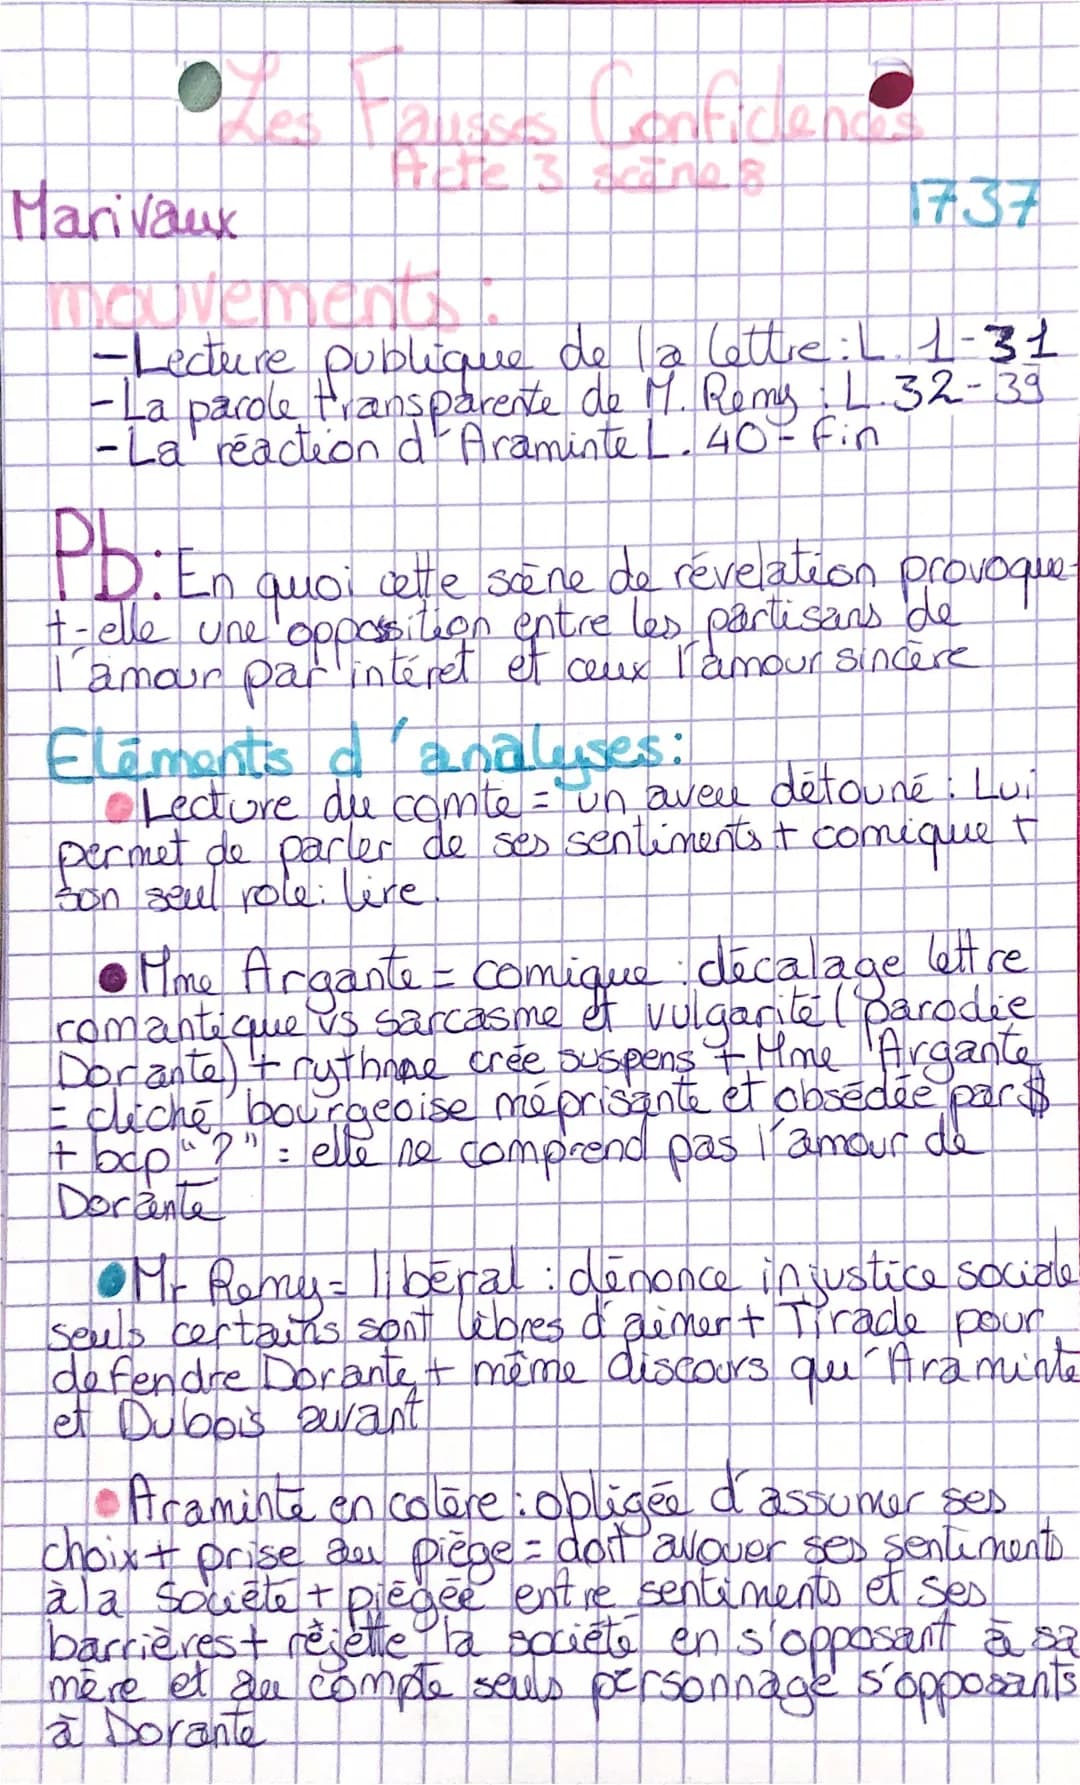 Les Fausses Confidences
Acte 3 scène 8
Marivaux 1737
mouvements :
- Lecture publique de la lettre : L. 1-31
- La parole transparente de M. Remy : L. 32-39
- La réaction d'Araminte L. 40- fin
Pb : En quoi cette scène de révelation provoque-
t-elle une oppossition entre les partisans de
l'amour par intéret et ceux l'amour sincère
Eléments d'analyses :
Lecture du comte = un aveu détouné : Lui
permet de parler de ses sentiments + comique +
son seul role : lire.
Mme Argante = comique : décalage lettre
romantique vs sarcasme et vulgarité (parodie
Dorante) + rythme crée suspens + Mme Argante
= cliché bourgeoise méprisante et obsédée par $
+ bcp "?" = elle ne comprend pas l'amour de
Dorante
Mr Remy = libéral : dénonce injustice sociale
seuls certains sont libres d'aimer + Tirade pour
defendre Dorante + même discours qu'Araminte
et Dubois avant
Araminte en colère : obligée d'assumer ses
choix + prise au piège = doit avouer ses sentiments
à la société + piégée entre sentiments et ses
barrières + rejette la société en s'opposant à sa
mère et au compte seuls personnage s'opposants
à Dorante